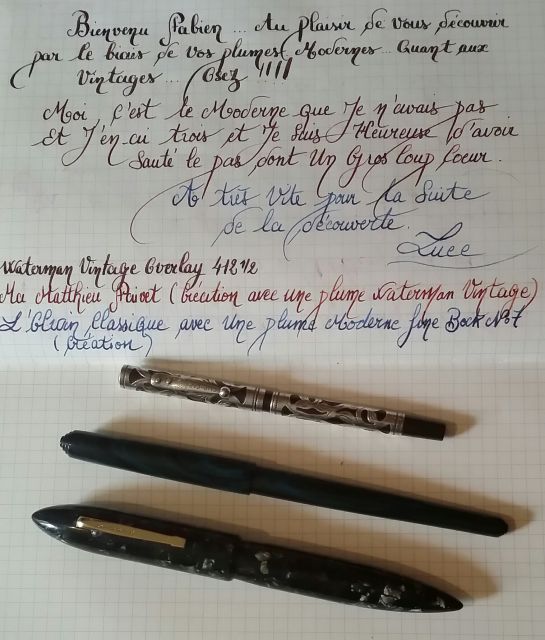 Bienvenu Fabien... Au plaisir de vous découvrir
par le biais de vos plumes Modernes... Quant aux
Vintages... Osez !!!!
Moi, c'est le Moderne que Je n'avais pas
Et J'en ai trois et Je suis Heureuse d'avoir
Sauté le pas dont Un Gros Coup Coeur.
A très Vite pour la Suite
de la découverte.
Luce
Waterman Vintage Overlay 412 1/2
Ma Matthieu (Création avec une plume Waterman Vintage)
L' Classique avec Une plume Moderne fine Bock N°7
(Création)